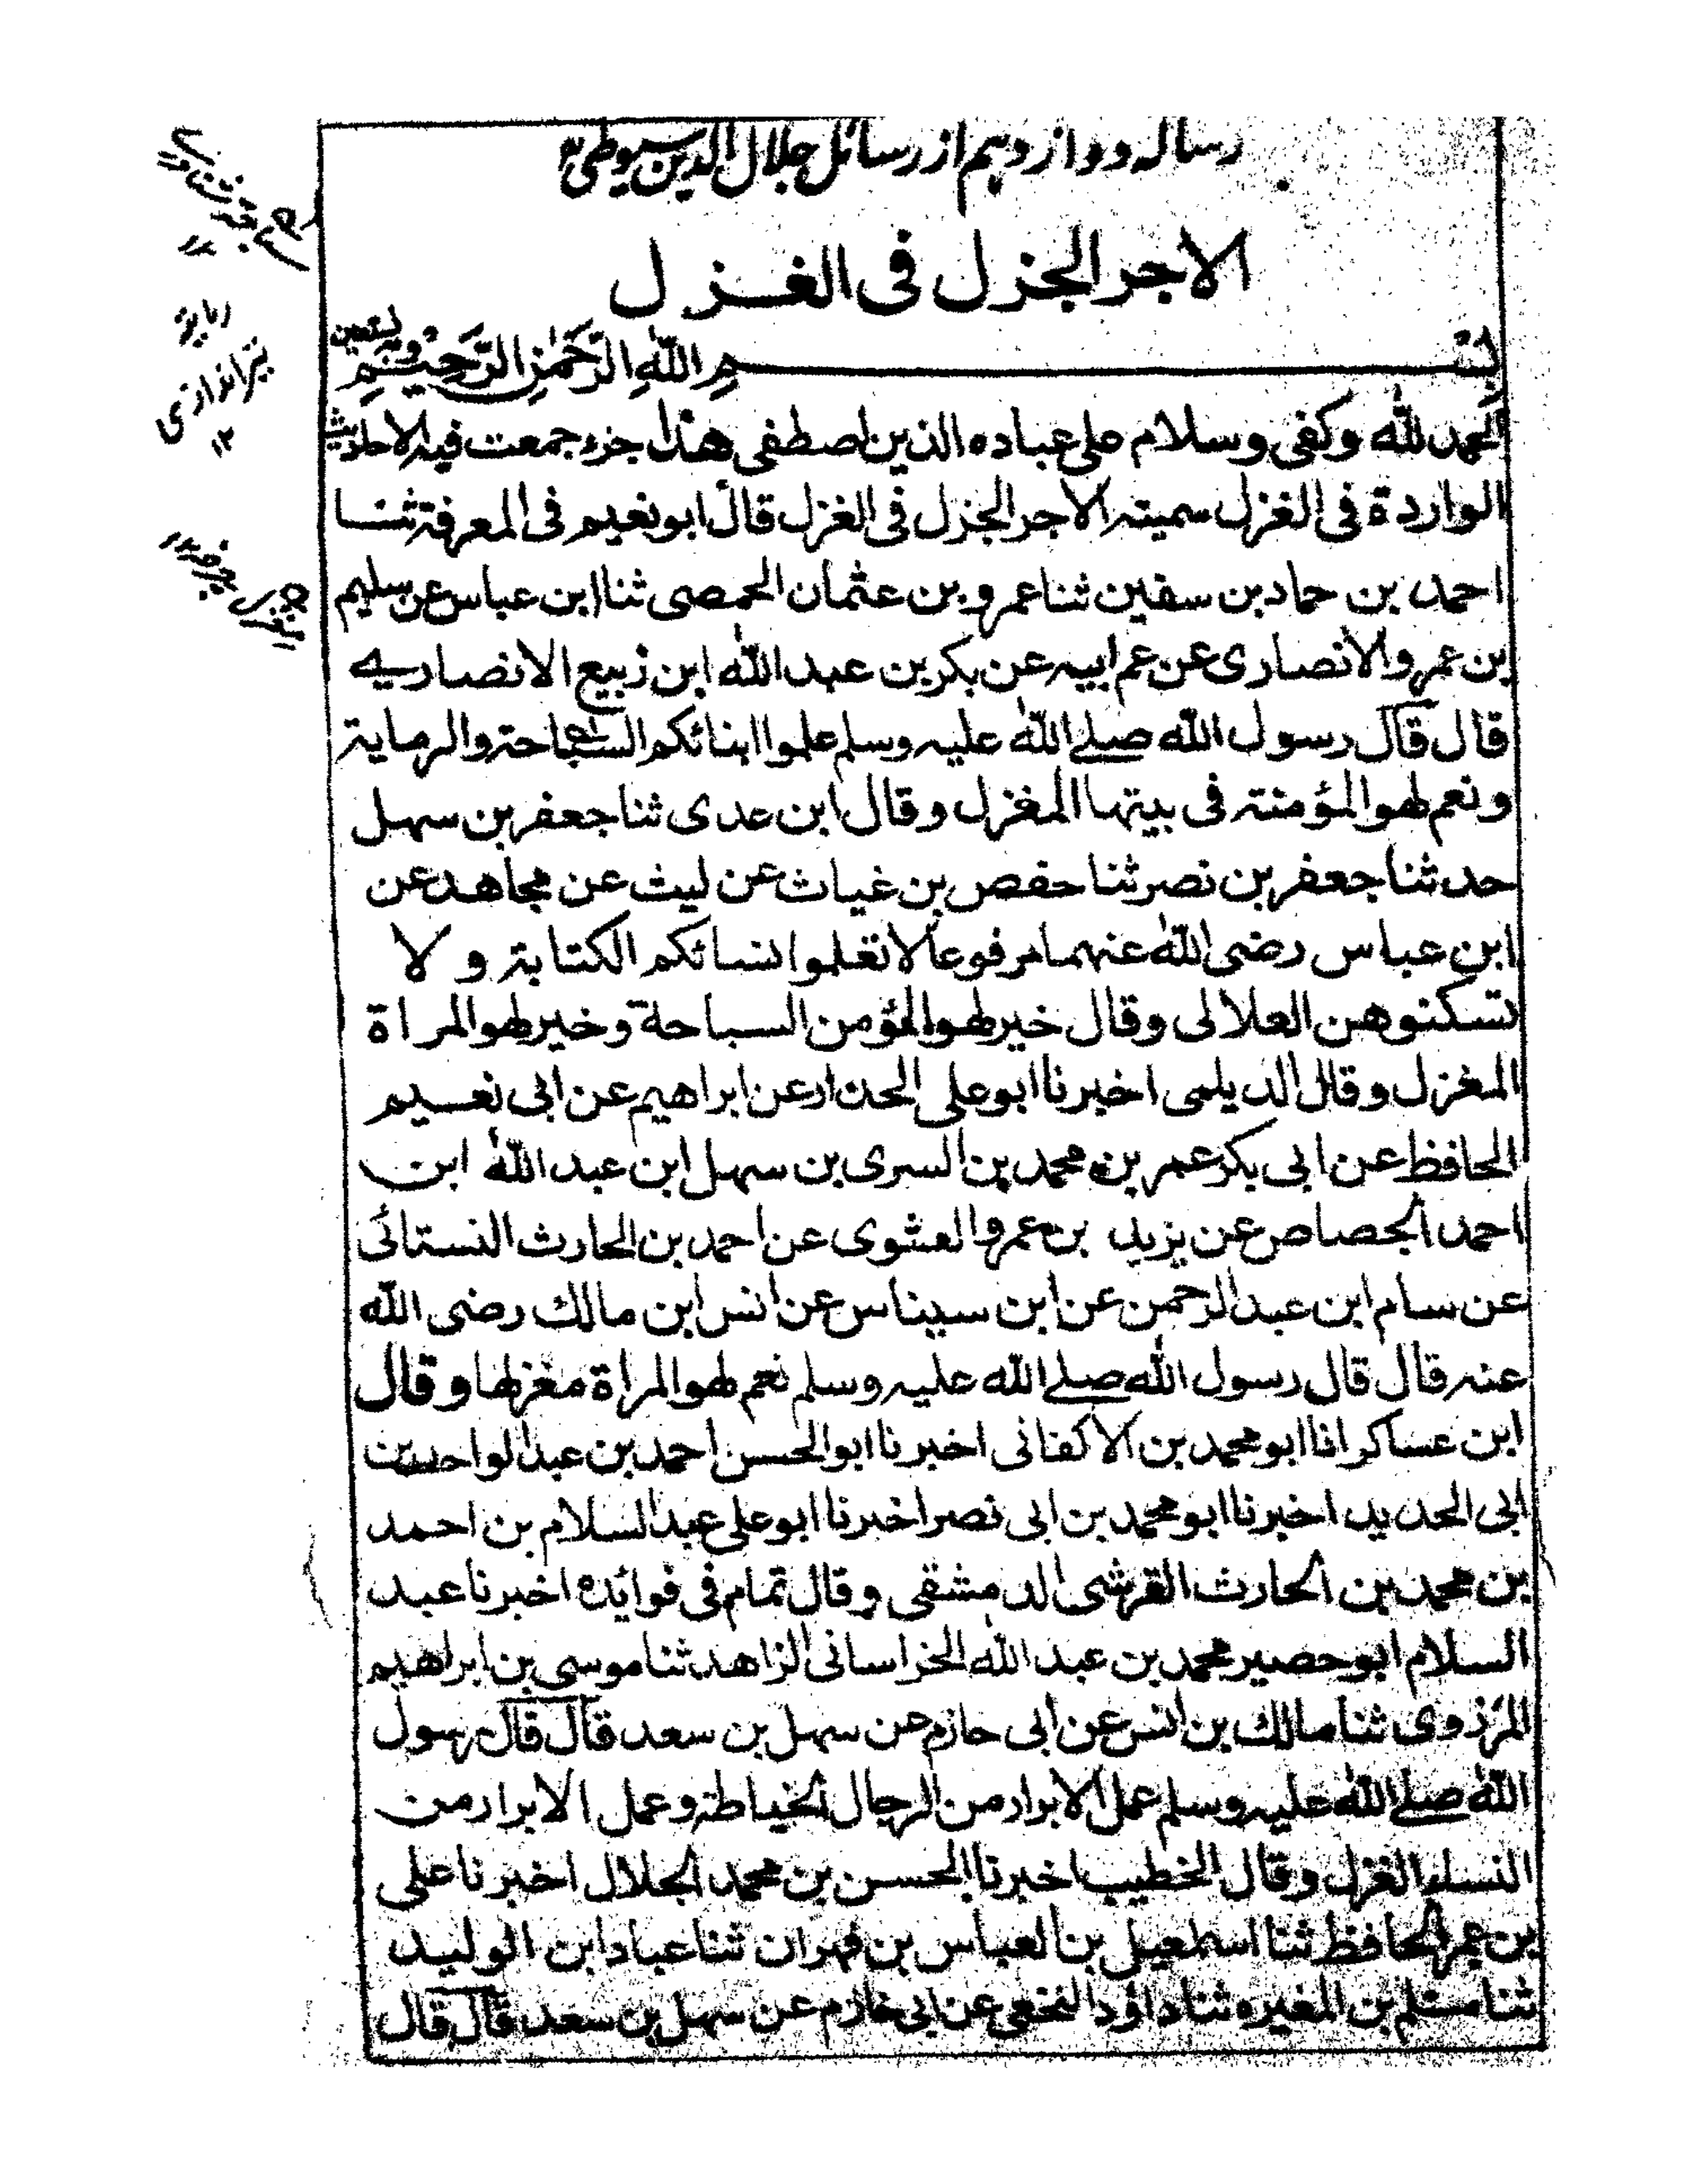 رساله دوازدهم از رسائل جلال الدين سيوطی رح
الاجر الجزل فى الغزل
بسم الله الرحمٰن الرحيم وبه نستعين
الحمد لله وكفى وسلام على عباده الذين اصطفى هذا جزء جمعت فيه الاحاديث
الواردة فى الغزل سميته الاجر الجزل فى الغزل قال ابو نعيم فى المعرفة ثنا
احمد بن حماد بن سفين ثنا عمرو بن عثمان الحمصى ثنا ابن عباس عن سليم
بن عمرو الانصارى عن عم ابيه عن بكر بن عبد الله ابن زبيع الانصارے
قال قال رسول الله صلے الله عليه وسلم علموا ابنائكم السباحة والرماية
ونعم لهو المؤمنة فى بيتها المغزل وقال ابن عدى ثنا جعفر بن سهل
حدثنا جعفر بن نصر ثنا حفص بن غياث عن ليث عن مجاهد عن
ابن عباس رضى الله عنهما مرفوعا لا تعلموا نسائكم الكتابة و لا
تسكنوهن العلالى وقال خير لهو المؤمن السباحة وخير لهو المراة
المغزل وقال الديلمى اخبرنا ابو على الحداد عن ابراهيم عن ابى نعيم
الحافظ عن ابى بكر عمر بن محمد بن السرى بن سهل ابن عبد الله ابن
احمد الجصاص عن يزيد بن عمرو العشوى عن احمد بن الحارث النستائى
عن سام ابن عبد الرحمن عن ابن سيناس عن انس ابن مالك رضى الله
عنه قال قال رسول الله صلے الله عليه وسلم نعم لهو المراة مغزلها وقال
ابن عساكر انا ابو محمد بن الاكفانى اخبرنا ابو الحسن احمد بن عبد الواحد بن
ابى الحديد اخبرنا ابو محمد بن ابى نصر اخبرنا ابو على عبد السلام بن احمد
بن محمد بن الحارث القرشى الدمشقى وقال تمام فى فوائده اخبرنا عبد
السلام ابو حصير محمد بن عبد الله الخراسانى الزاهد ثنا موسى بن ابراهيم
المرزوى ثنا مالك بن انس عن ابى حازم عن سهل بن سعد قال قال رسول
الله صلے الله عليه وسلم عمل الابرار من الرجال الخياطة وعمل الابرار من
النساء الغزل وقال الخطيب اخبرنا الحسن بن محمد الجلال اخبرنا على
بن عمر الحافظ ثنا اسمعيل بن العباس بن فهران ثنا عباد ابن الوليد
ثنا مسلم بن المغيره ثنا داؤد النخعى عن ابى خازم عن سهل بن سعد قال قال
رماية
تيراندازی
۱۲